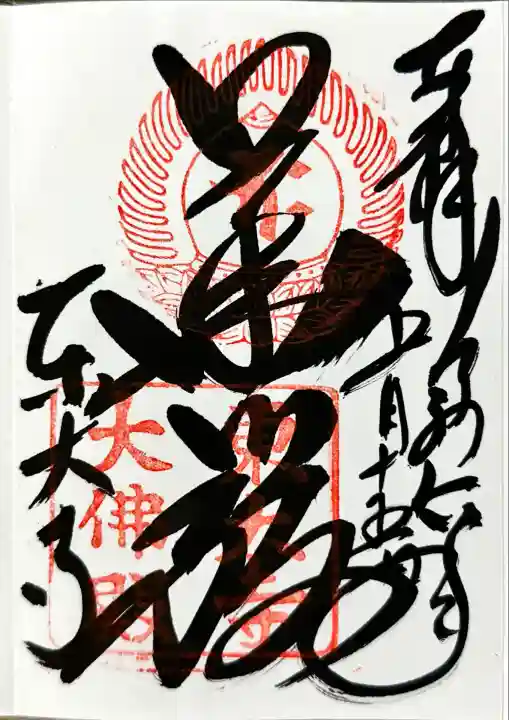 奉拝
令和六年
月
華嚴
東大寺
東大寺
大佛殿